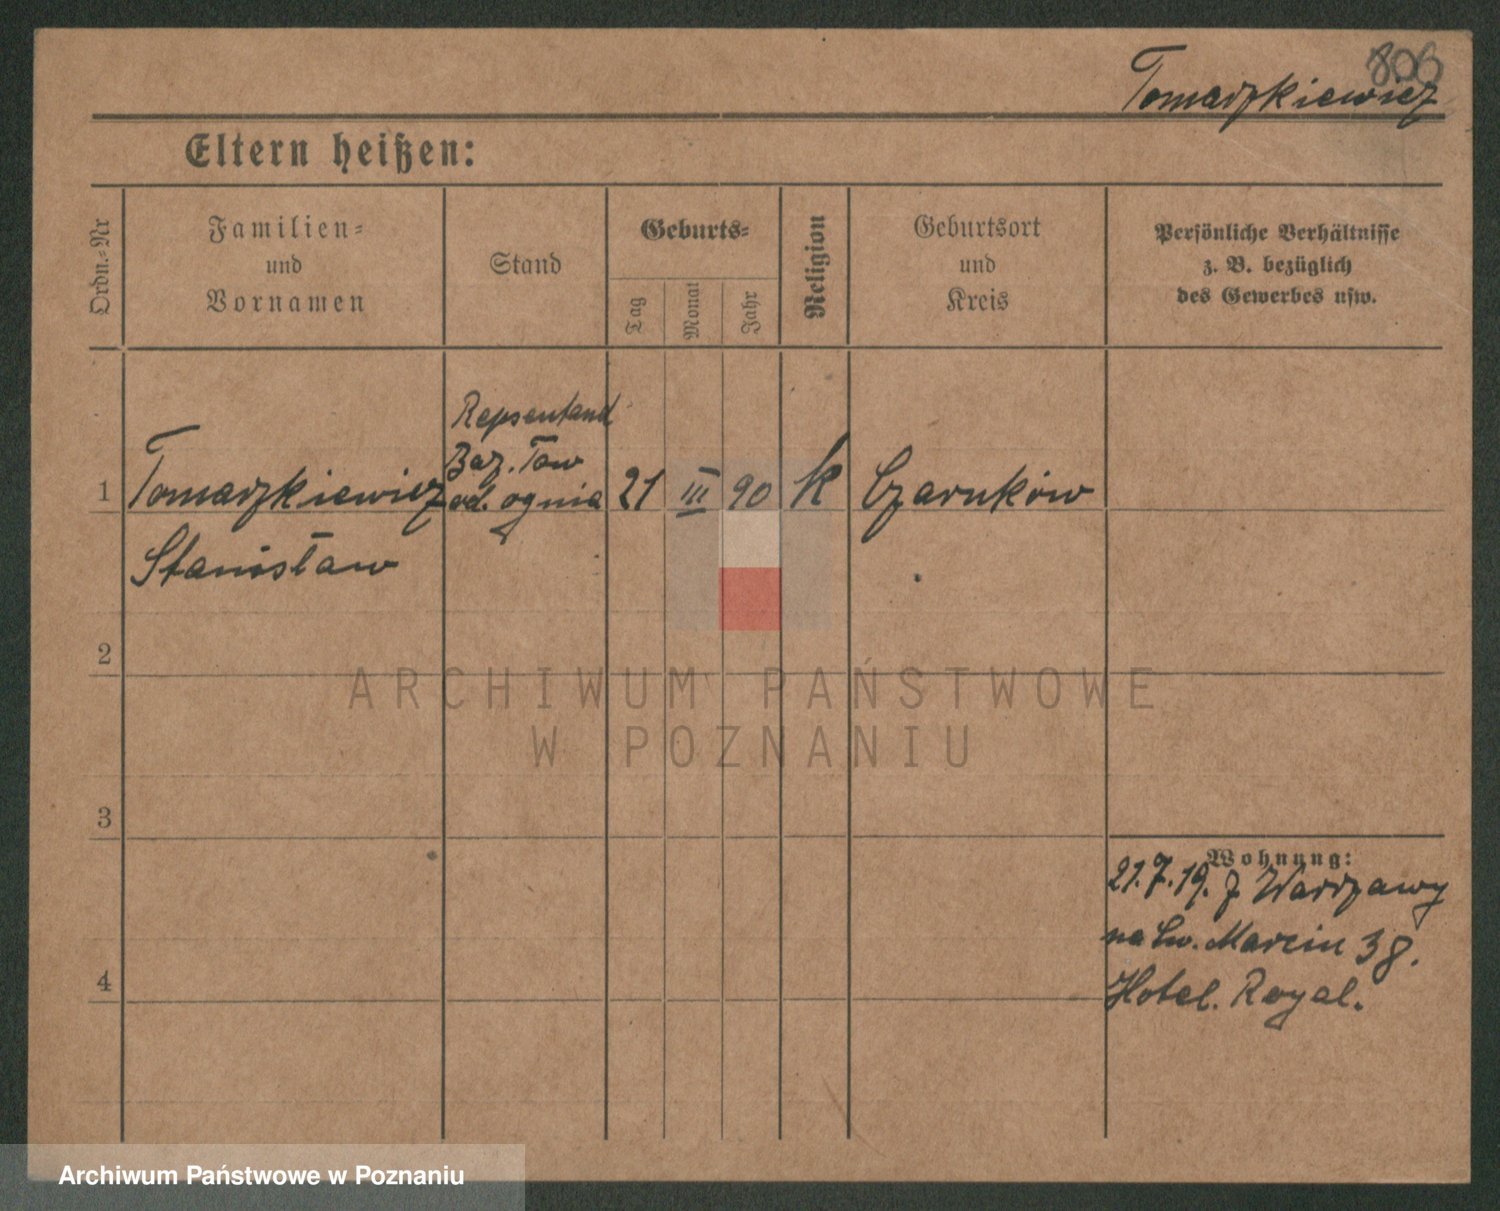 806
Tomaszkiewicz
Eltern heißen:
Ordn.-Nr
Familien-
und
Vornamen
Stand
Geburts-
Tag
Monat
Jahr
Religion
Geburtsort
und
Kreis
Persönliche Verhältnisse
z. B. bezüglich
des Gewerbes usw.
1
Tomaszkiewicz
Stanisław
Repsentand
Tow
od. ognia
21
III
90
k
Czarnków
2
3
4
Wohnung:
21.7.19. z Warszawy
na Św. Marcin 38.
Hotel. Royal.
ARCHIWUM PAŃSTWOWE
W POZNANIU
Archiwum Państwowe w Poznaniu